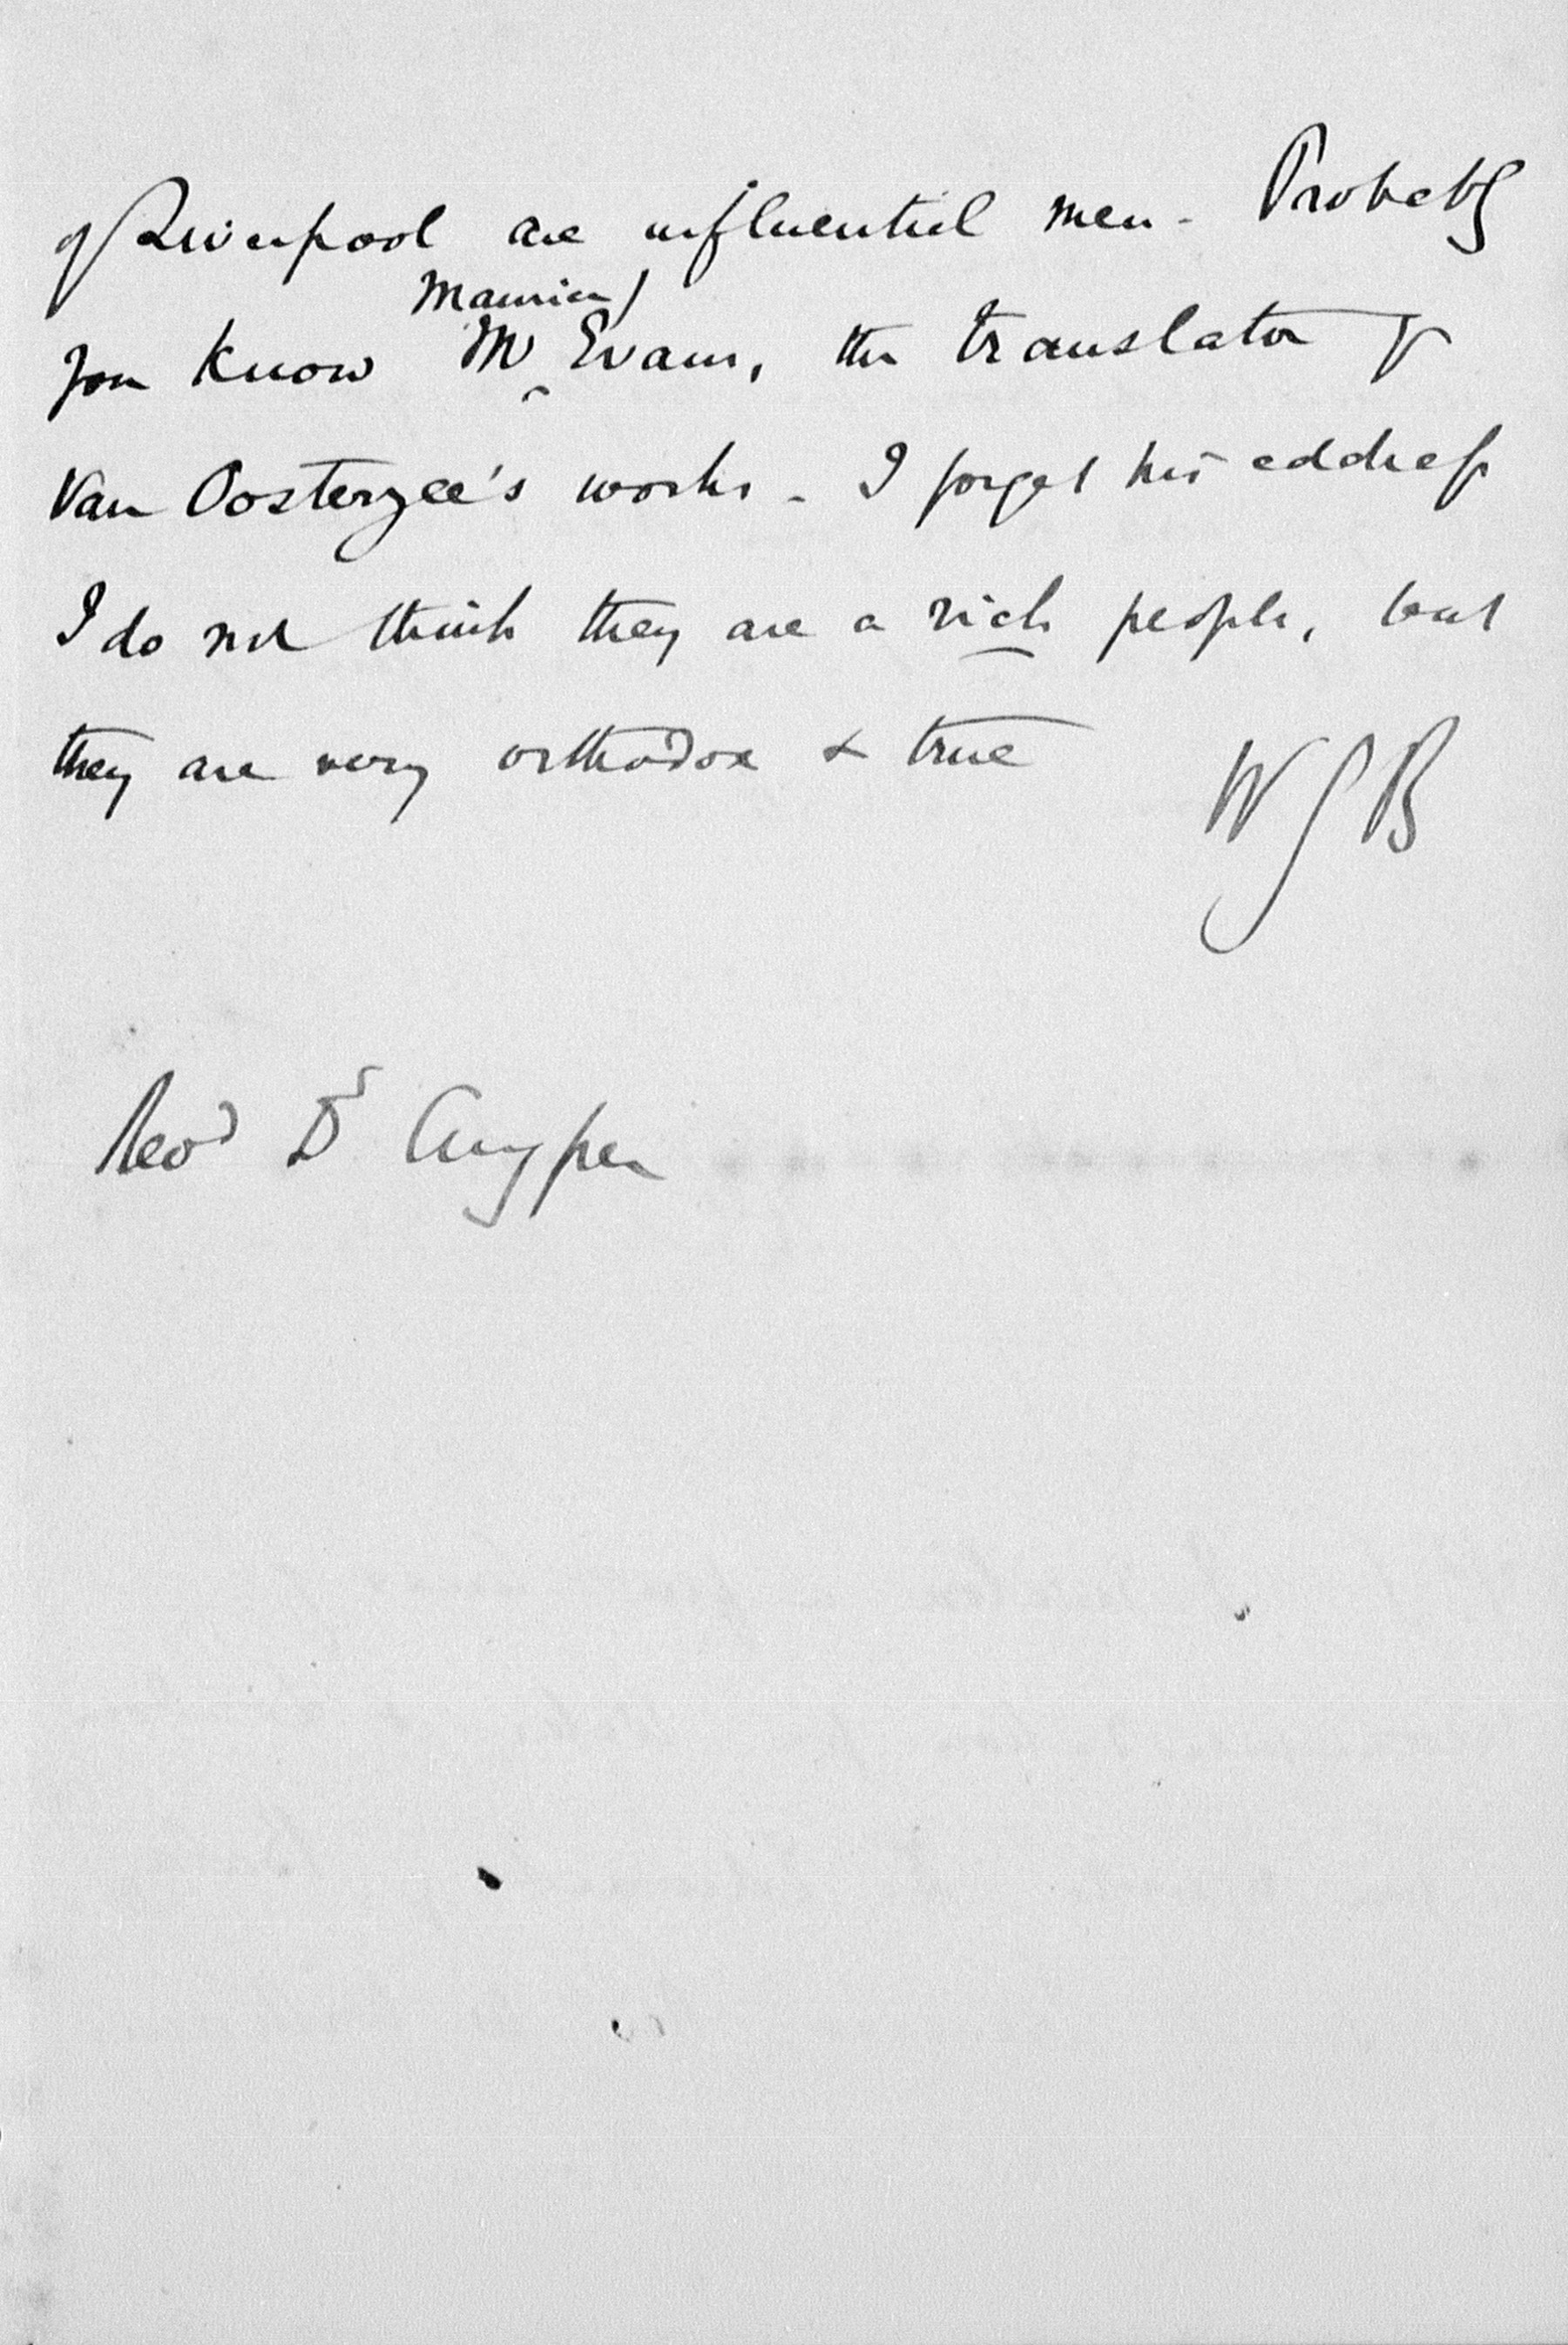 of Liverpool are influential men - Probably
Maurice/
you know Mr Evans, the translator of
Van Oosterzee's works - I forget his address
I do not think they are a rich people, but
they are very orthodox & true
WGB
Revd Dr Cuyper